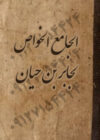 الجامع الخواص
لجابر بن حیان